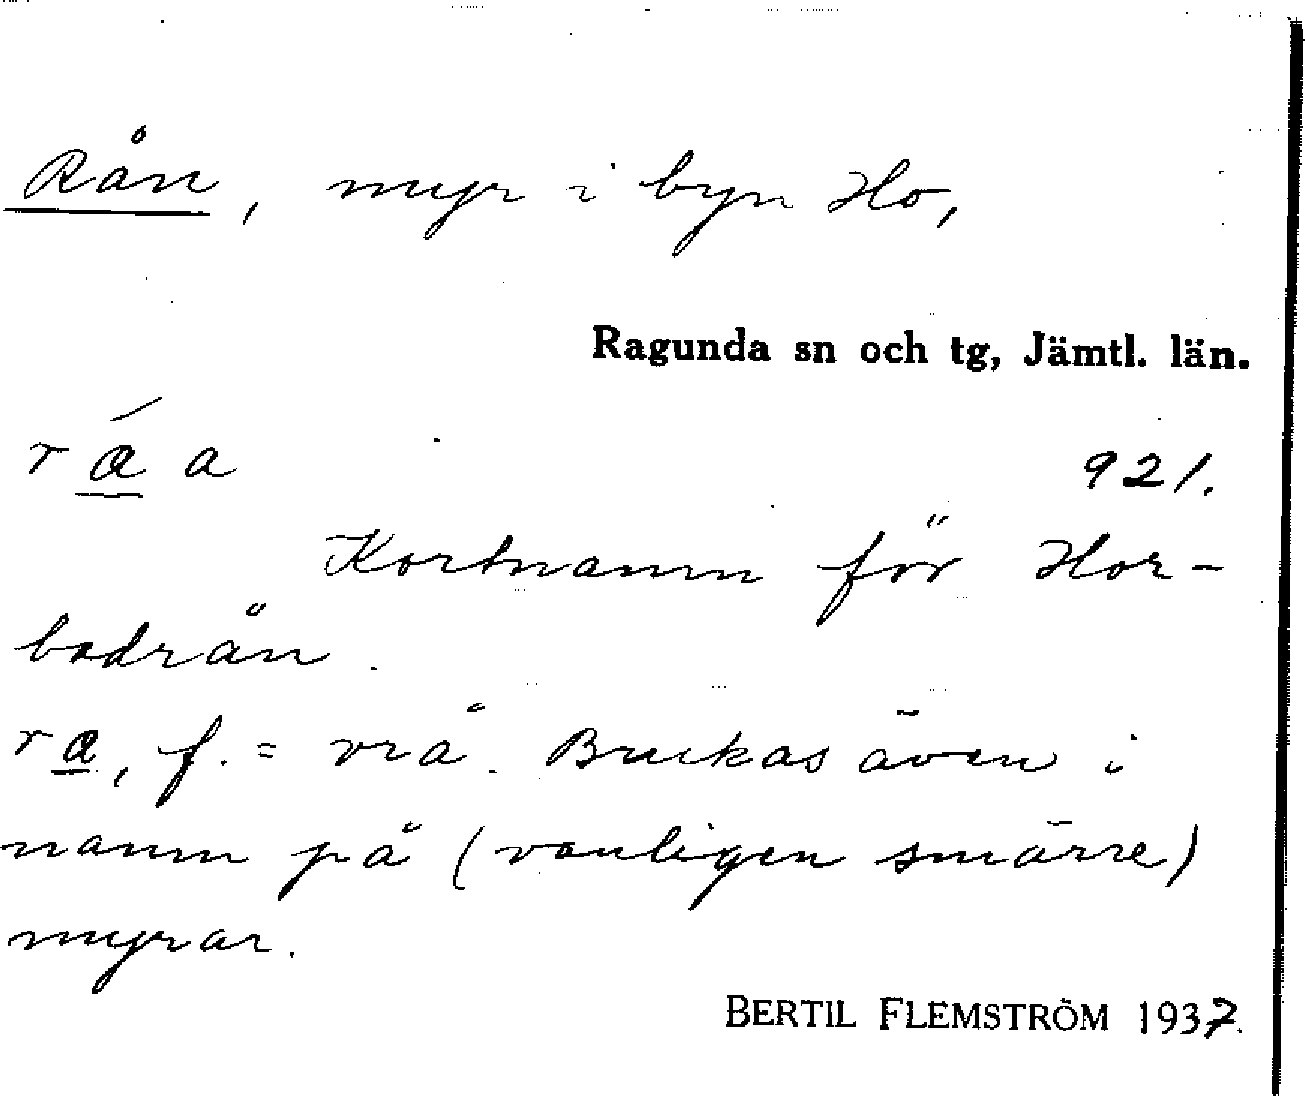 Rån, myr i byn Ho,
Ragunda sn och tg, Jämtl. län.
r á a
921.
Kortnamn för Hor-
bodrån.
ra, f. = vrå. Brukas även i
namn på (vanligen smärre)
myrar.
BERTIL FLEMSTRÖM 1937.